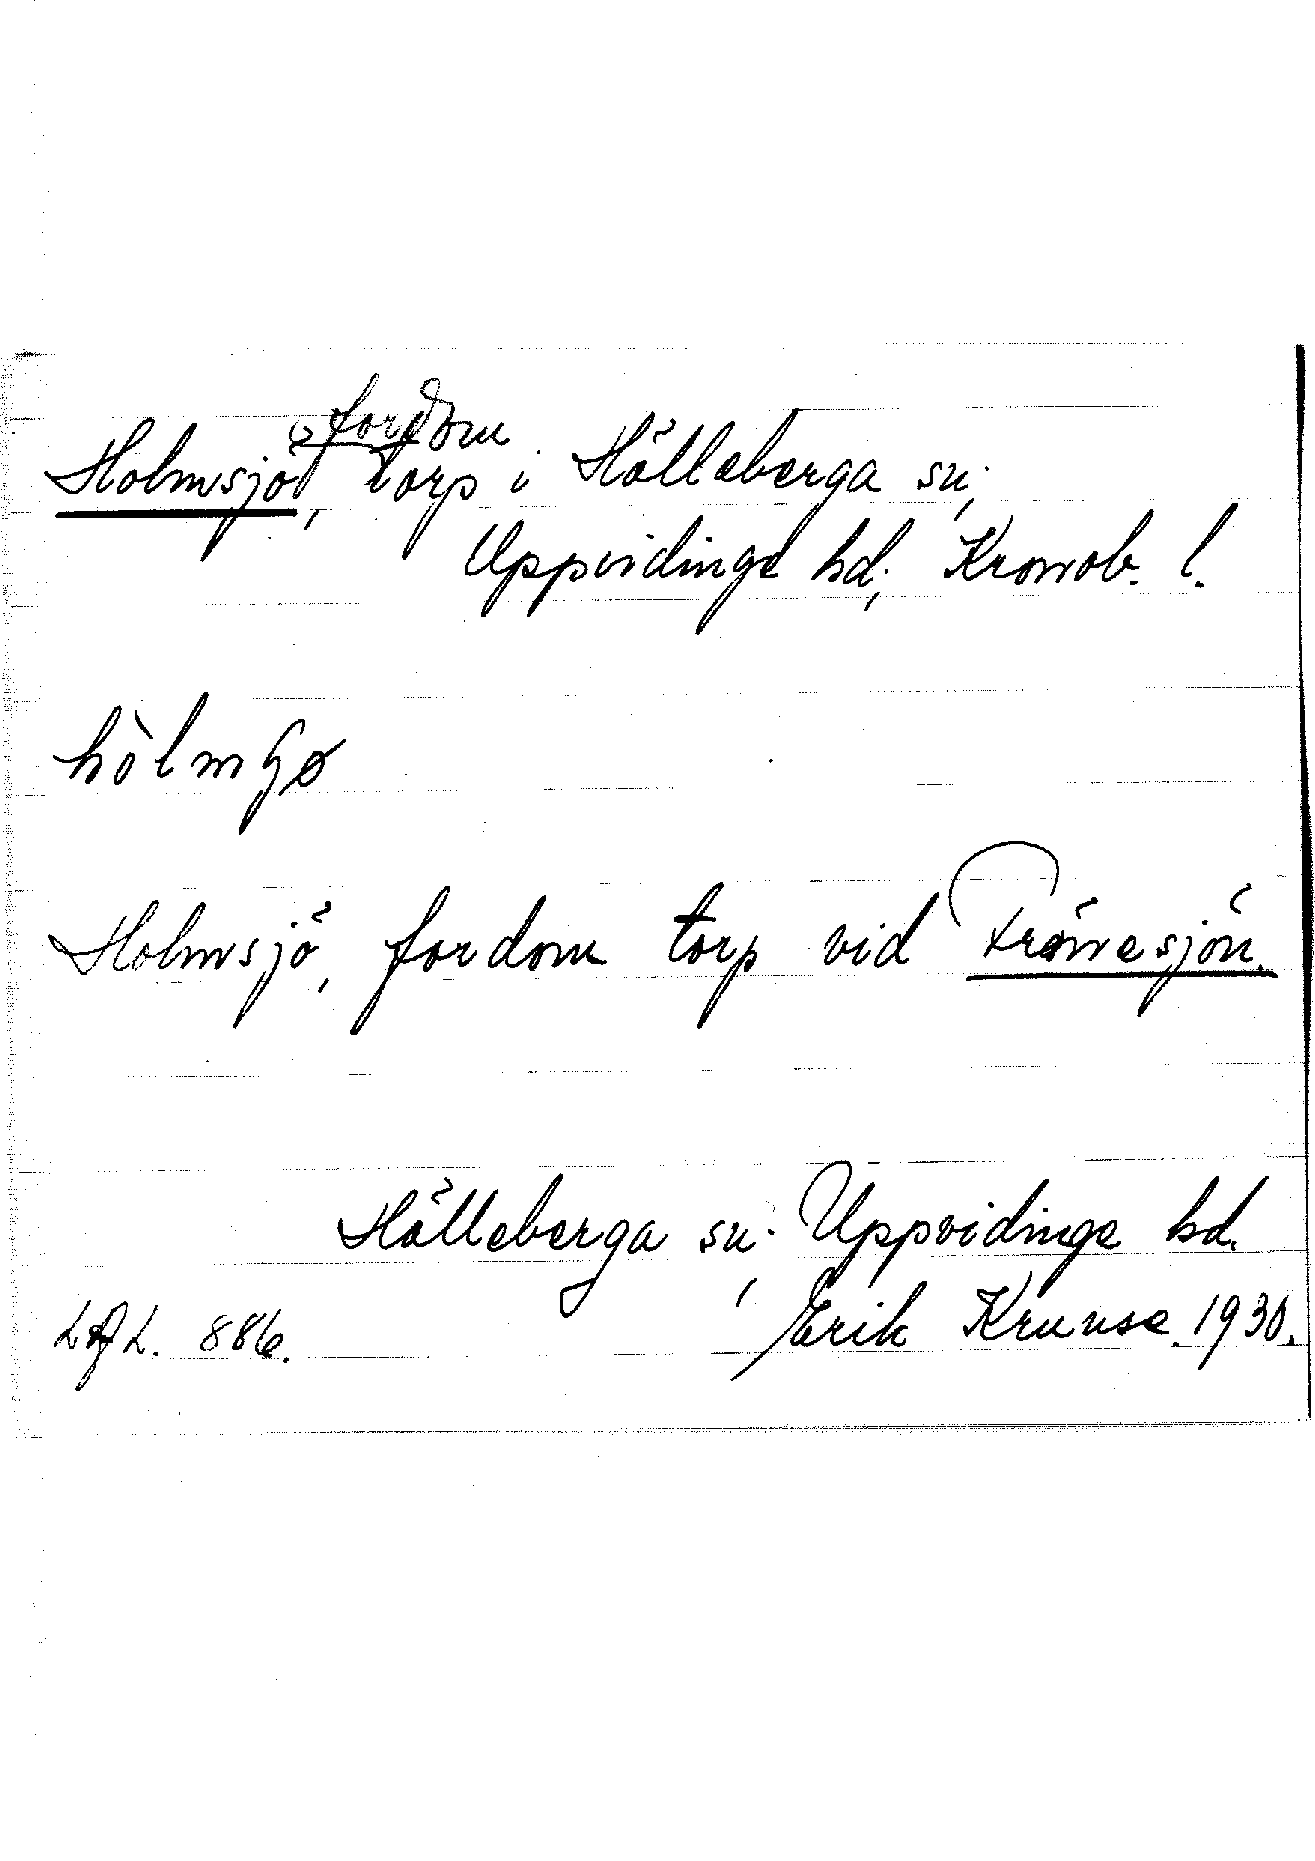 Holmsjö, fordom torp i Hälleberga sn;
Uppvidinge hd; Kronob. l.
hòlmʃø
Holmsjö, fordom torp vid Frönesjön.
Hälleberga sn; Uppvidinge hd.
LAL. 886. Erik Kruuse. 1930.